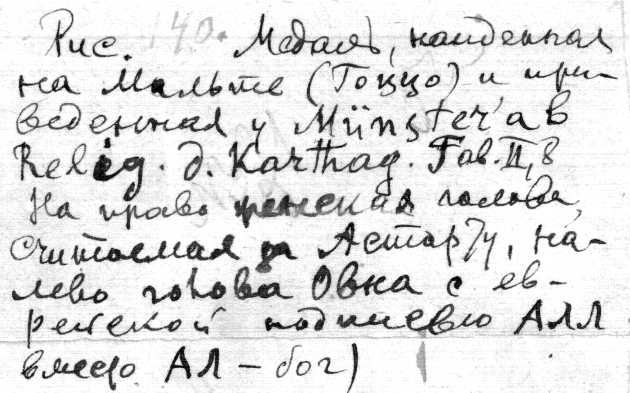 Рис. 140. Медаль, найденная
на Мальте (Гоццо) и при-
веденная у Münster'а в
Relig. d. Karthag. Tab. II, 8
На право женская голова,
считаемая за Астарту, на-
лево голова Овна с ев-
рейской подписью АЛЛ
вместо АЛ – бог)